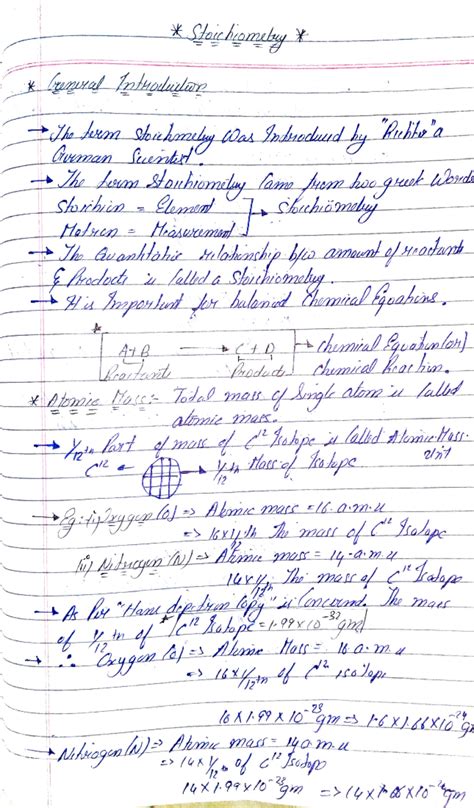 * Stoichiometry *
* General Introduction
→ The term Stoichmetry was Introduced by "Richter" a
German Scientist.
→ The term Stoichiometry Came from two greek Words
Stoichion = Element
Metron = Measurement
→ Stoichiometry
→ The Quantitative relationship b/w amount of reactants
& Products is Called a Stoichiometry.
→ It is Important for balanced Chemical Equations.
A+B → C+D → Chemical Equation (or)
Reactants Products Chemical Reaction.
* Atomic Mass:- Total mass of Single atom is Called
atomic mass.
→ 1/12th Part of mass of C12 Isotope is Called Atomic Mass
Unit
C12 ← → 1/12th Mass of Isotope
→ Eg:- (i) Oxygen (O) => Atomic mass = 16 a.m.u
=> 16 x 1/12th The mass of C12 Isotope
(ii) Nitrogen (N) => Atomic mass = 14 a.m.u
14 x 1/12th The mass of C12 Isotope
→ As Per is Concernd. The mass
of 1/12th of C12 Isotope = 1.99 x 10-23 gm
→ ∴ Oxygen (O) => Atomic Mass = 16 a.m.u
=> 16 x 1/12th of C12 isotope
16 x 1.99 x 10-23 gm => 1.6 x 1.66 x 10-24 gm
→ Nitrogen (N) => Atomic mass = 14 a.m.u
=> 14 x 1/12th of C12 Isotope
14 x 1.99 x 10-23 gm => 14 x 10-24 gm